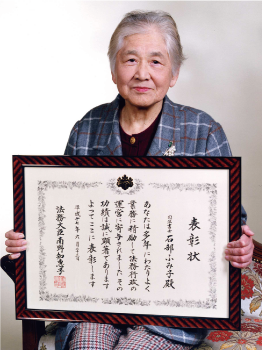 表彰状
司法書士 石部ふみ子殿
あなたは多年にわたりよく
業務に精励し法務行政の
運営に寄与されましたその
功績は誠に顕著であります
よってここに表彰します
平成十七年六月
法務大臣南野知惠子